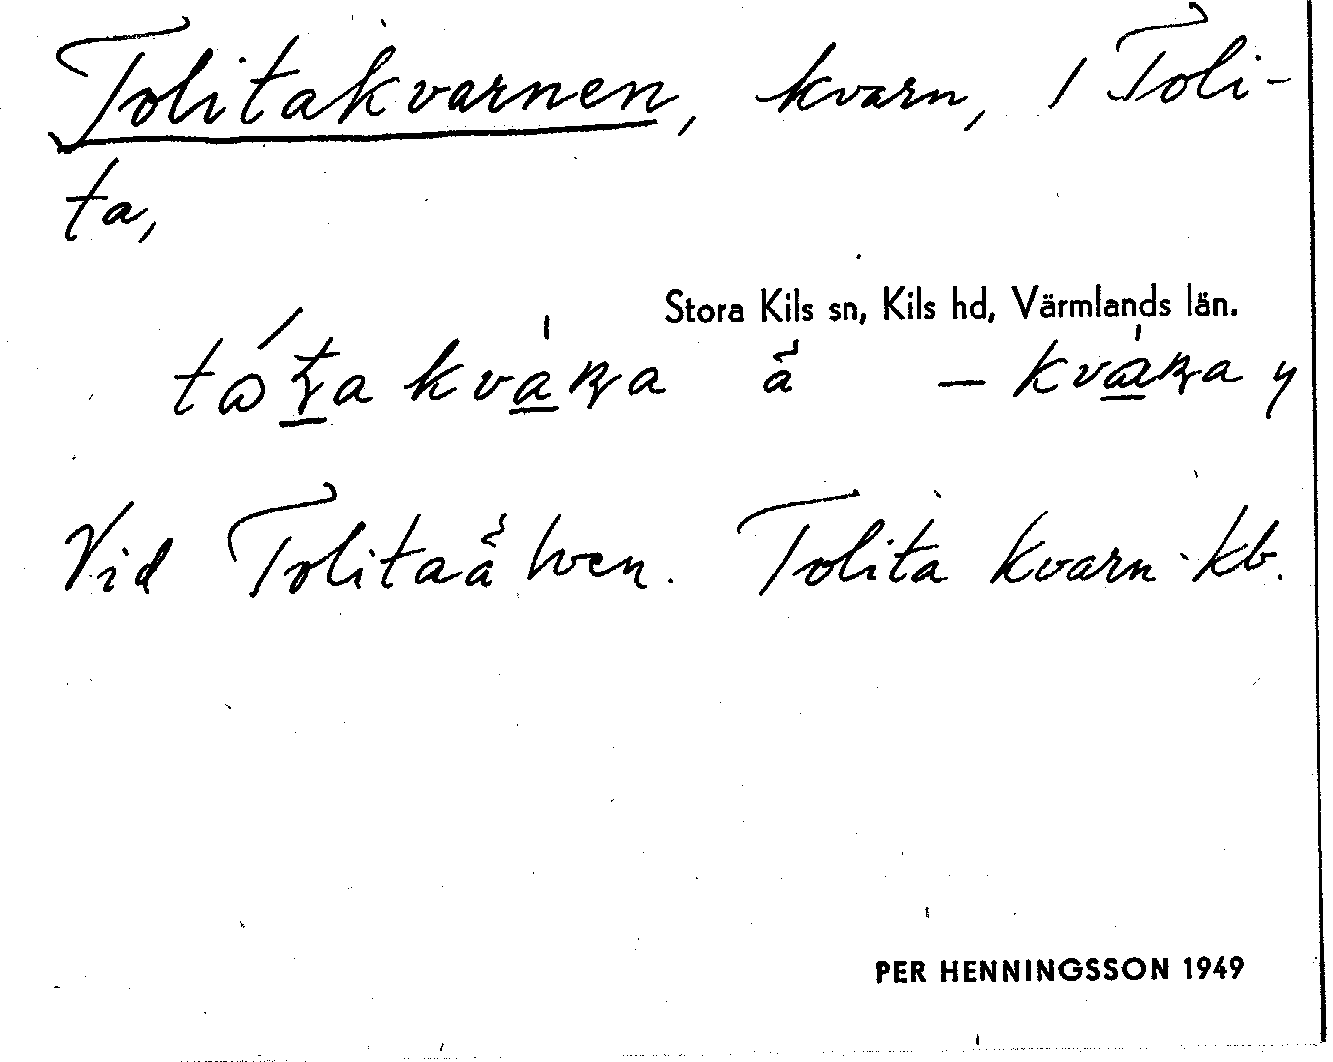 Tolitakvarnen, kvarn, i Toli-
ta,
Stora Kils sn, Kils hd, Värmlands län.
kva
å — y
Vid Tolitaälven. Tolita kvarn kb.
PER HENNINGSSON 1949